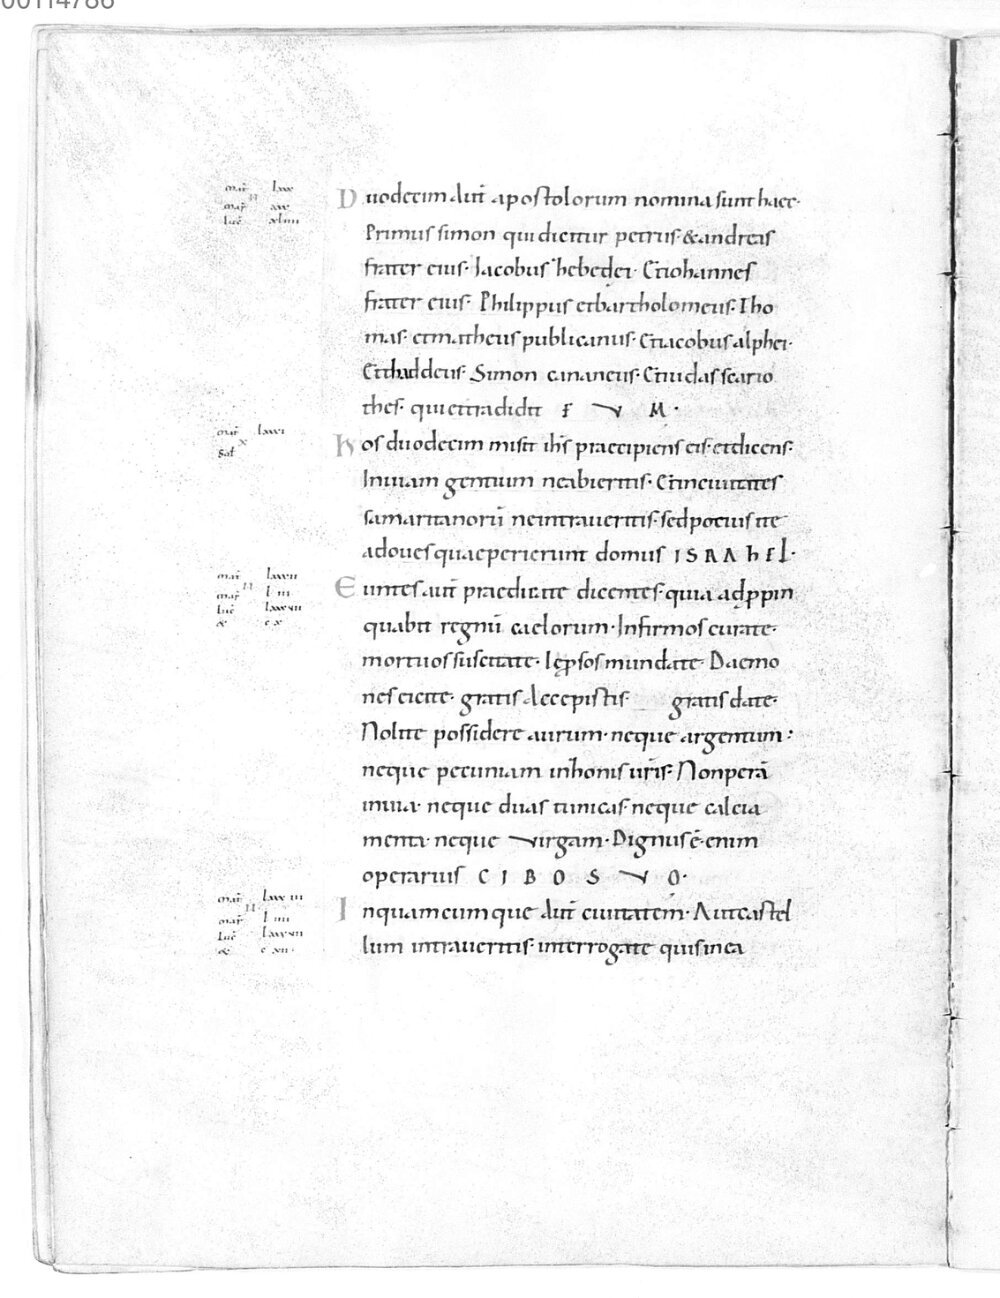 00114786
Duodecim aut̄ apostolorum nomina sunt haec·
Primus simon qui dicitur petrus & andreas
frater eius· Iacobus hebedei· Et iohannes
frater eius· Philippus et bartholomeus· Tho
mas· et matheus publicanus· Et iacobus alphei·
Et thaddeus· Simon cananeus· Et iudas scario
thes· qui et tradidit E V M·
Hos duodecim misit ih̄s praecipiens eis· et dicens·
In uiam gentium ne abieritis· Et in ciuitates
samaritanorū ne intraueritis· sed potius ite
ad oues quae perierunt domus ISRAhEL·
Euntes aut̄ praedicate dicentes· quia adp̱pin
quabit regnū caelorum· Infirmos curate·
mortuos suscitate· lep̱sos mundate· Daemo
nes eicite· gratis accepistis· gratis date·
Nolite possidere aurum· neque argentum·
neque pecuniam in honis ur̄is· Non perā
in uia· neque duas tunicas· neque calcia
menta· neque virgam· Dignus ē· enim
operarius C I B O S V O·
In quamcumque aut̄ ciuitatem· Aut castel
lum intraueritis· interrogate quis in ea